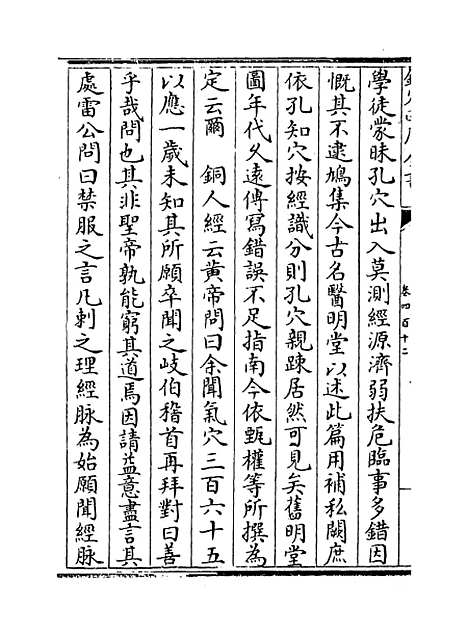 學徒蒙昧孔穴出入莫測經源濟弱扶危臨事多錯因
慨其不逮鳩集今古名醫明堂以述此篇用補私闕庶
依孔知穴按經識分則孔穴親踈居然可見矣舊明堂
圖年代久遠傳寫錯誤不足指南今依甄權等所撰為
定云爾　銅人經云黄帝問曰余聞氣穴三百六十五
以應一歲未知其所願卒聞之歧伯稽首再拜對曰善
乎哉問也其非聖帝孰能窮其道焉因請益意盡言其
處雷公問曰禁服之言凡刺之理經脉為始願聞經脉
卷四百十二